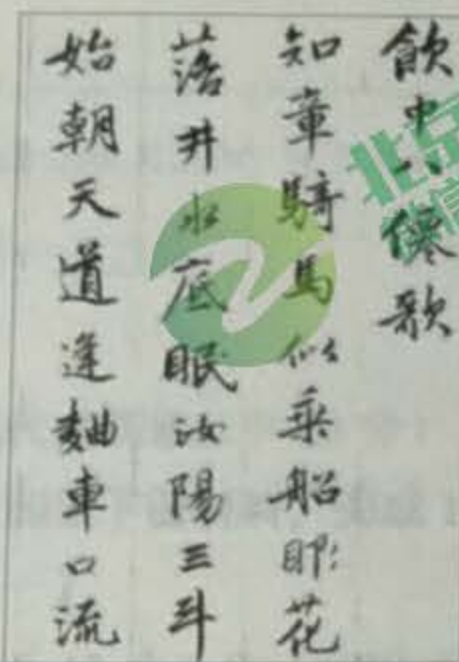 飲中八僊歌
知章騎馬似乘船眼花
落井水底眠汝陽三斗
始朝天道逢麯車口流
北京